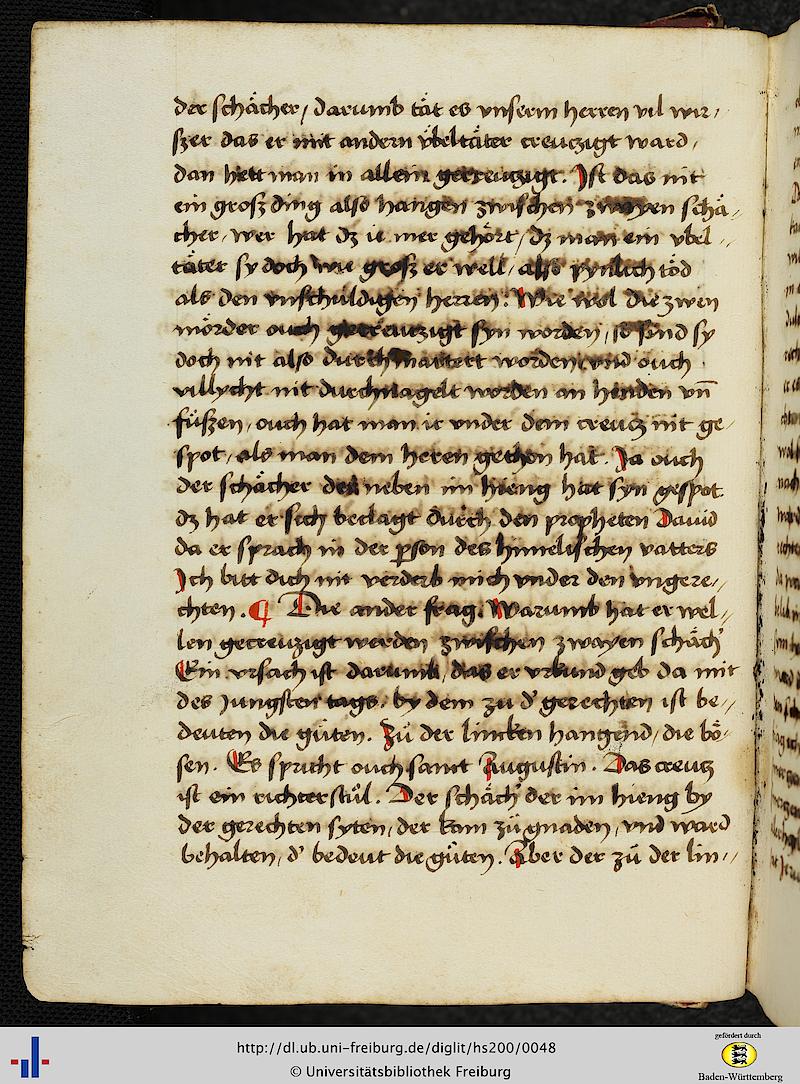 der schächer / darumb tät es vnserm herren vil wir-
szer das er mit andern v̈beltäter creuczigt ward /
dan hett man in allein gecreuczigt. Ist das nit
ein grosz ding also hangen zwischen zwayen schä-
cher / wer hat dz ie mer gehört / dz man ein vbel-
täter sy doch wie grosz er well / also pynlich töd
als den vnschuldigen herren. Wie wol die zwen
mörder ouch gecreuczigt syn worden / so sind sy
doch nit also durchmartert worden / vnd ouch
villycht nit durchnagelt worden an henden vn̄
füszen / ouch hat man ir vnder dem creucz nit ge-
spot / als man dem heren gethon hat. Ja ouch
der schächer der neben im hieng hat syn gespot
dz hat er sich beclagt durch den propheten Dauid
da er sprach in der ꝑson des himelischen vatters
Ich bitt dich nit verderb mich vnder den vngere-
chten. ¶ Die ander frag. Warumb hat er wel-
len gecreuzigt werden zwischen zwayen schäch'
Ein vrsach ist darumb / das er vrkund geb da mit
des jungsten tags / by dem zu d' gerechten ist be-
deuten die güten. Zů der lincken hangend / die bö-
sen. Es spricht ouch sant Augustin. Das creucz
ist ein richterstůl. Der schäch' der im hieng by
der gerechten syten / der kam zů gnaden / vnd ward
behalten / d' bedeut die güten. Aber der zů der lin-
http://dl.ub.uni-freiburg.de/diglit/hs200/0048
© Universitätsbibliothek Freiburg
gefördert durch
Baden-Württemberg